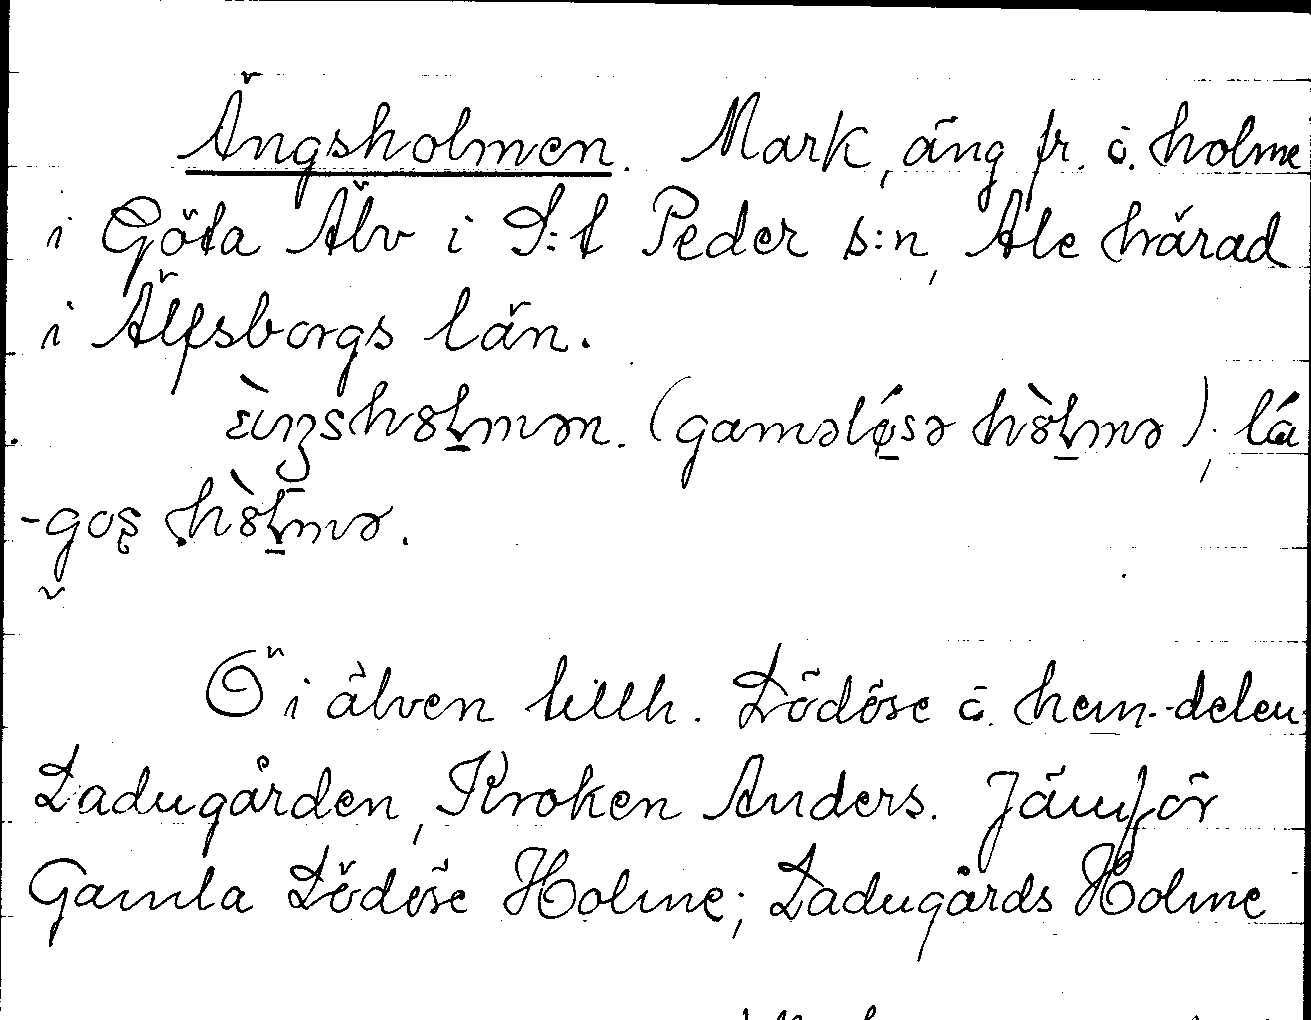 Ängsholmen. Mark, äng fr. ö. holme
i Göta Älv i S:t Peder s:n, Ale härad
i Älfsborgs län.
Ö i älven tillh. Lödöse ö. hem.-delen
Ladugården, Kroken Anders. Jämför
Gamla Lödöse Holme; Ladugårds Holme